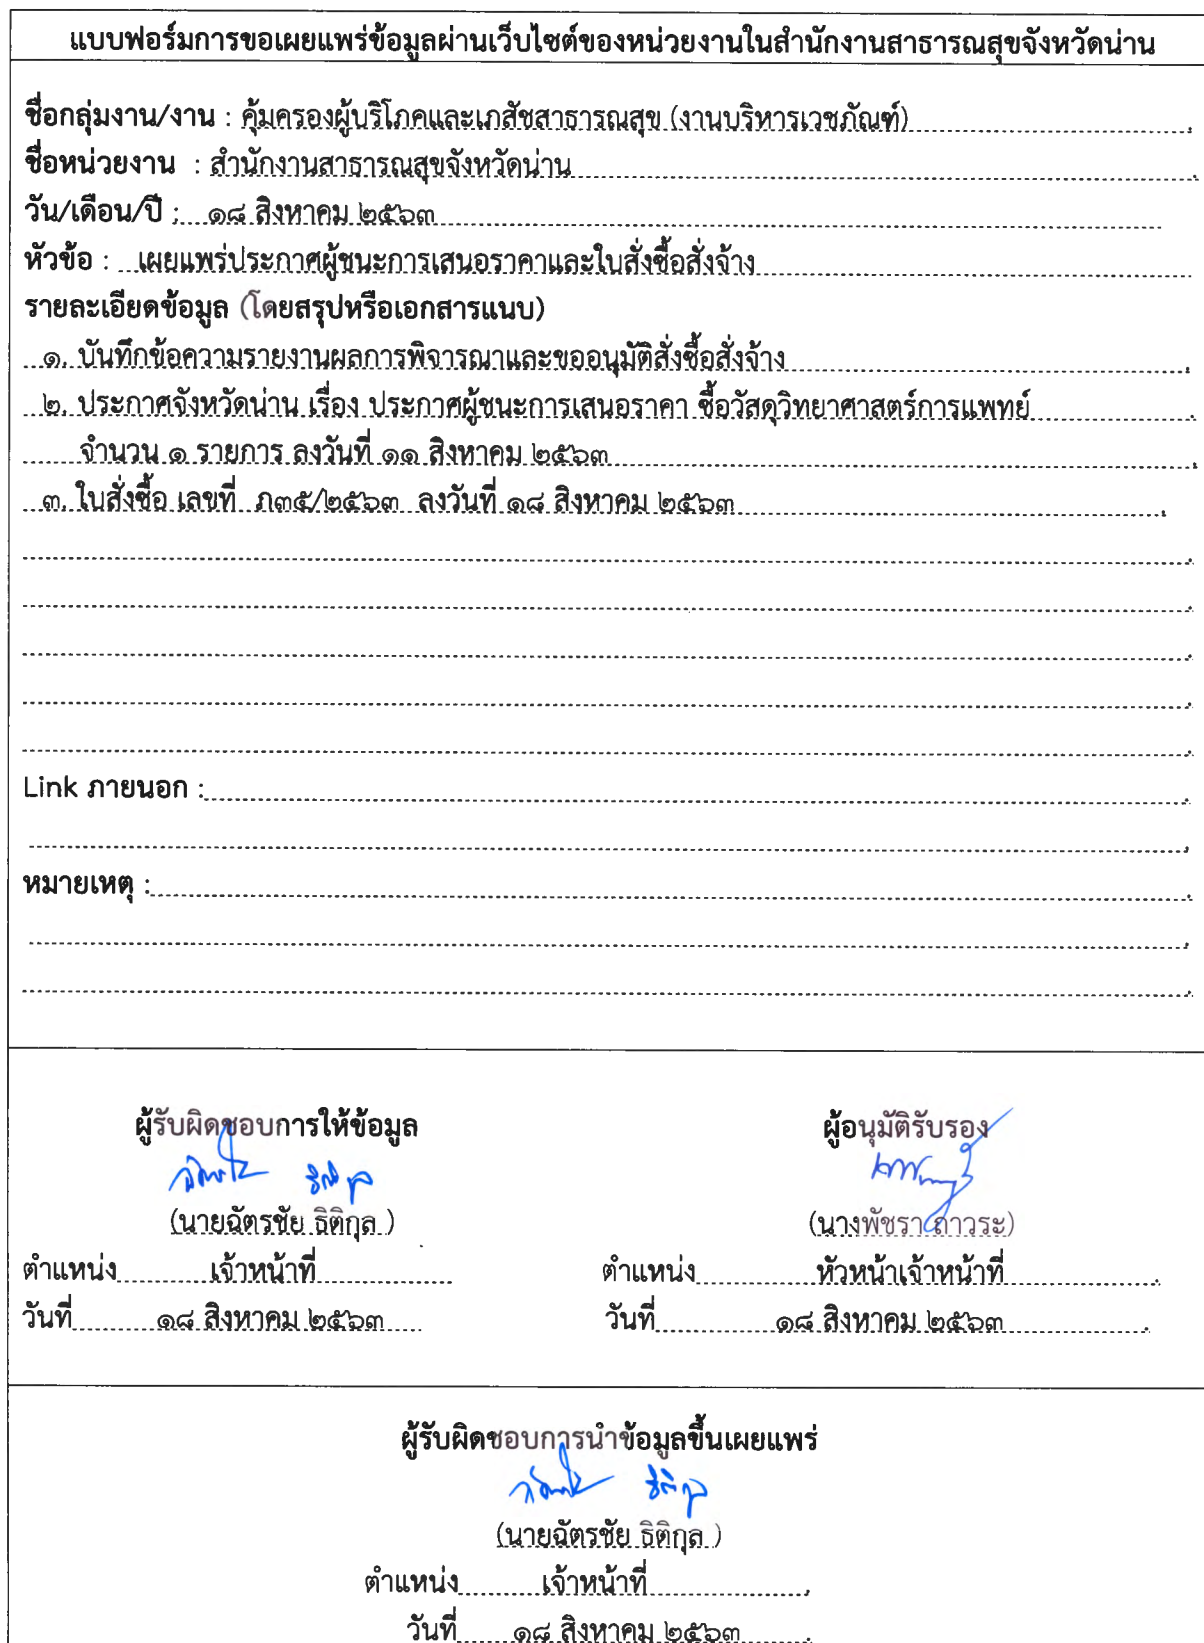 แบบฟอร์มการขอเผยแพร่ข้อมูลผ่านเว็บไซต์ของหน่วยงานในสำนักงานสาธารณสุขจังหวัดน่าน
ชื่อกลุ่มงาน/งาน : คุ้มครองผู้บริโภคและเภสัชสาธารณสุข (งานบริหารเวชภัณฑ์)
ชื่อหน่วยงาน : สำนักงานสาธารณสุขจังหวัดน่าน
วัน/เดือน/ปี : ๑๘ สิงหาคม ๒๕๖๓
หัวข้อ : เผยแพร่ประกาศผู้ชนะการเสนอราคาและใบสั่งซื้อสั่งจ้าง
รายละเอียดข้อมูล (โดยสรุปหรือเอกสารแนบ)
๑. บันทึกข้อความรายงานผลการพิจารณาและขออนุมัติสั่งซื้อสั่งจ้าง
๒. ประกาศจังหวัดน่าน เรื่อง ประกาศผู้ชนะการเสนอราคา ซื้อวัสดุวิทยาศาสตร์การแพทย์
จำนวน ๑ รายการ ลงวันที่ ๑๑ สิงหาคม ๒๕๖๓
๓. ใบสั่งซื้อ เลขที่ ภ๓๕/๒๕๖๓ ลงวันที่ ๑๘ สิงหาคม ๒๕๖๓
Link ภายนอก :
หมายเหตุ :
ผู้รับผิดชอบการให้ข้อมูล
ฉัตรชัย ธิติกุล
(นายฉัตรชัย ธิติกุล )
ตำแหน่ง เจ้าหน้าที่
วันที่ ๑๘ สิงหาคม ๒๕๖๓
ผู้อนุมัติรับรอง
(นางพัชรา ถาวระ)
ตำแหน่ง หัวหน้าเจ้าหน้าที่
วันที่ ๑๘ สิงหาคม ๒๕๖๓
ผู้รับผิดชอบการนำข้อมูลขึ้นเผยแพร่
ฉัตรชัย ธิติกุล
(นายฉัตรชัย ธิติกุล )
ตำแหน่ง เจ้าหน้าที่
วันที่ ๑๘ สิงหาคม ๒๕๖๓